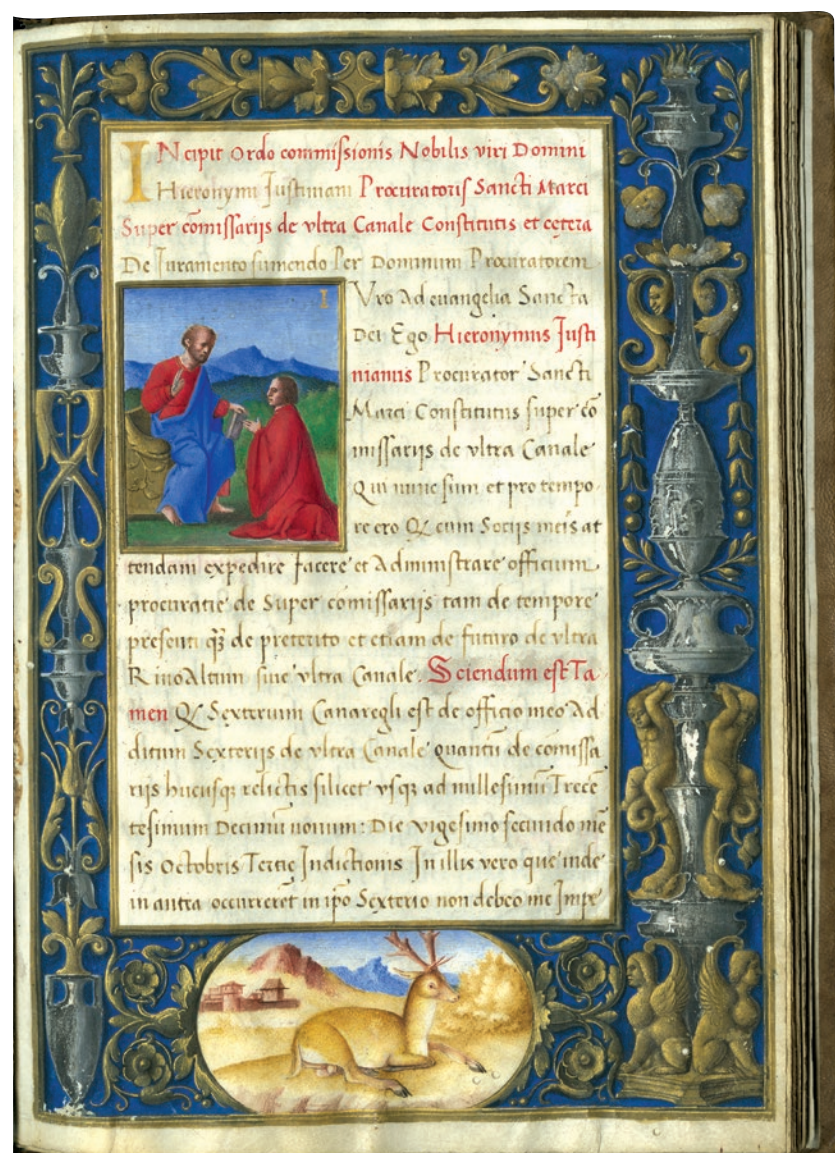 INcipit Ordo commissionis Nobilis viri Domini
Hieronymi Iustiniani Procuratoris Sancti Marci
Super cōmissarijs de vltra Canale Constitutis et cetera
De Iuramento sumendo Per Dominum Procuratorem
I
Vro Ad euangelia Sancta
Dei Ego Hieronymus Justi
nianus Procurator Sancti
Marci Constitutus super cō
missarijs de vltra Canale
Qui nunc sum et pro tempo
re ero Q cum Socijs meis at
tendam expedire facere et Administrare officium
procuratie de Super cōmissarijs tam de tempore
presenti qȝ de preterito et etiam de futuro de vltra
RiuoAltum siue vltra Canale. Sciendum est Ta
men Q Sexterium Canaregli est de officio meo Ad
ditum Sexterijs de vltra Canale quantū de cōmissa
rijs hucusqȝ relictis silicet vsqȝ ad millesimū Trecē
tesimum Decimū nonum: Die vigesimo secundo mē
sis Octobris Tertię Jndictionis Jn illis vero que inde
in antea occurrerēt in ipo Sexterio non debeo me Jmpe